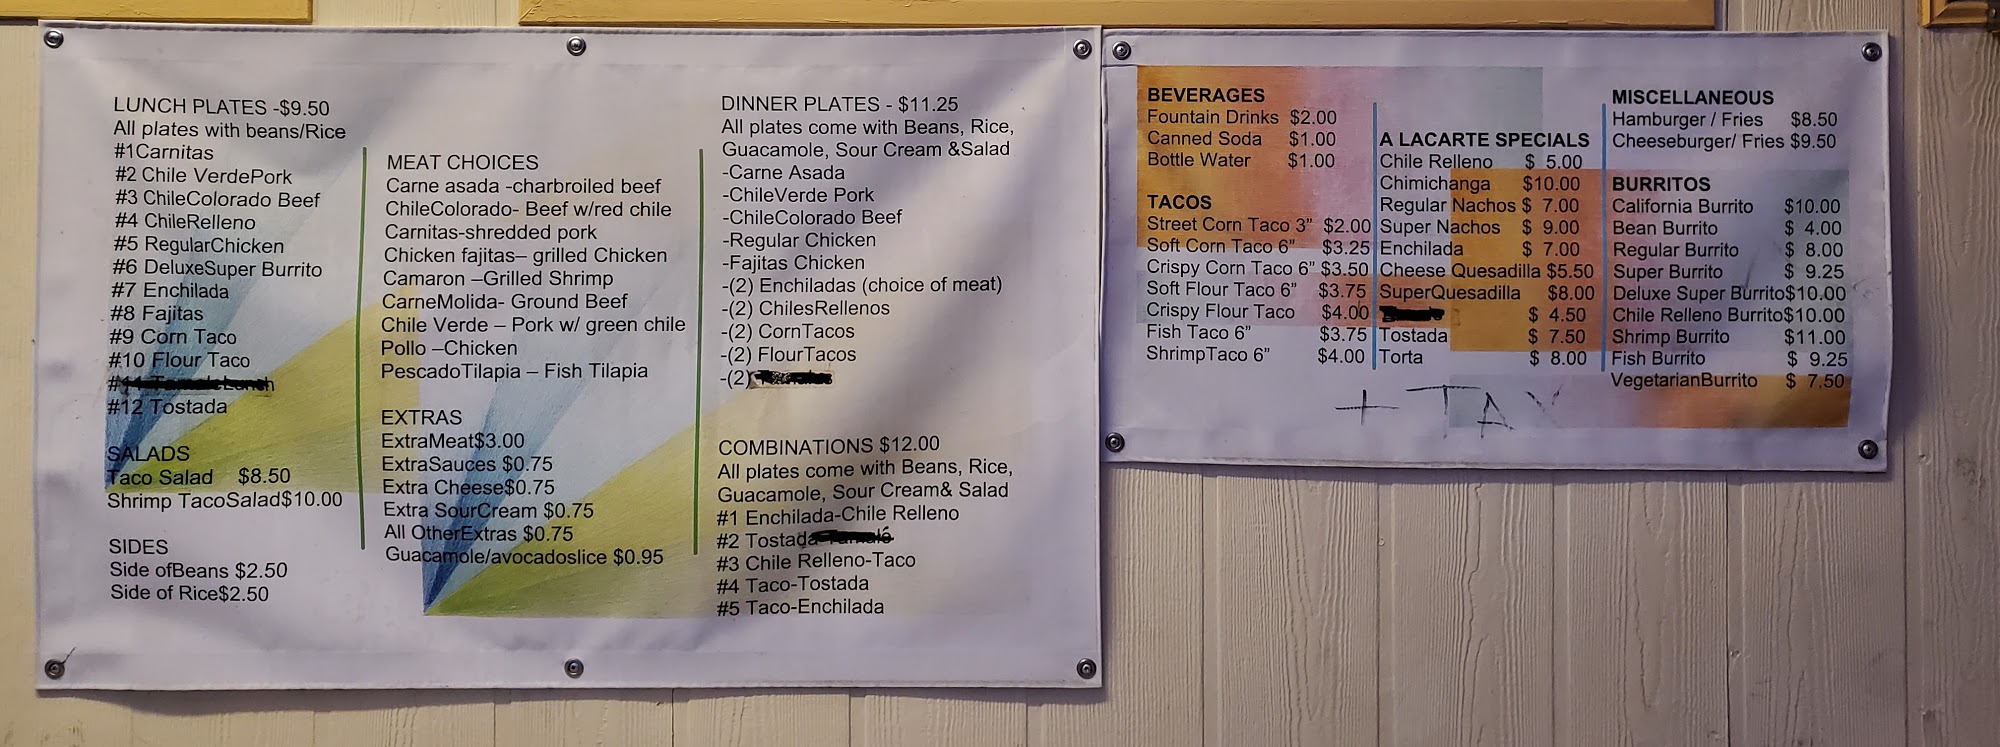 LUNCH PLATES -$9.50
All plates with beans/Rice
#1Carnitas
#2 Chile VerdePork
#3 ChileColorado Beef
#4 ChileRelleno
#5 RegularChicken
#6 DeluxeSuper Burrito
#7 Enchilada
#8 Fajitas
#9 Corn Taco
#10 Flour Taco
#11 TamaleLunch
#12 Tostada
SALADS
Taco Salad $8.50
Shrimp TacoSalad$10.00
SIDES
Side ofBeans $2.50
Side of Rice$2.50
MEAT CHOICES
Carne asada -charbroiled beef
ChileColorado- Beef w/red chile
Carnitas-shredded pork
Chicken fajitas– grilled Chicken
Camaron –Grilled Shrimp
CarneMolida- Ground Beef
Chile Verde – Pork w/ green chile
Pollo –Chicken
PescadoTilapia – Fish Tilapia
EXTRAS
ExtraMeat$3.00
ExtraSauces $0.75
Extra Cheese$0.75
Extra SourCream $0.75
All OtherExtras $0.75
Guacamole/avocadoslice $0.95
DINNER PLATES - $11.25
All plates come with Beans, Rice,
Guacamole, Sour Cream &Salad
-Carne Asada
-ChileVerde Pork
-ChileColorado Beef
-Regular Chicken
-Fajitas Chicken
-(2) Enchiladas (choice of meat)
-(2) ChilesRellenos
-(2) CornTacos
-(2) FlourTacos
-(2)
COMBINATIONS $12.00
All plates come with Beans, Rice,
Guacamole, Sour Cream& Salad
#1 Enchilada-Chile Relleno
#2 Tostada-Tamale
#3 Chile Relleno-Taco
#4 Taco-Tostada
#5 Taco-Enchilada
BEVERAGES
Fountain Drinks $2.00
Canned Soda $1.00
Bottle Water $1.00
TACOS
Street Corn Taco 3” $2.00
Soft Corn Taco 6” $3.25
Crispy Corn Taco 6” $3.50
Soft Flour Taco 6” $3.75
Crispy Flour Taco $4.00
Fish Taco 6” $3.75
ShrimpTaco 6” $4.00
A LACARTE SPECIALS
Chile Relleno $ 5.00
Chimichanga $10.00
Regular Nachos $ 7.00
Super Nachos $ 9.00
Enchilada $ 7.00
Cheese Quesadilla $5.50
SuperQuesadilla $8.00
$ 4.50
Tostada $ 7.50
Torta $ 8.00
MISCELLANEOUS
Hamburger / Fries $8.50
Cheeseburger/ Fries $9.50
BURRITOS
California Burrito $10.00
Bean Burrito $ 4.00
Regular Burrito $ 8.00
Super Burrito $ 9.25
Deluxe Super Burrito$10.00
Chile Relleno Burrito$10.00
Shrimp Burrito $11.00
Fish Burrito $ 9.25
VegetarianBurrito $ 7.50
+ TAX